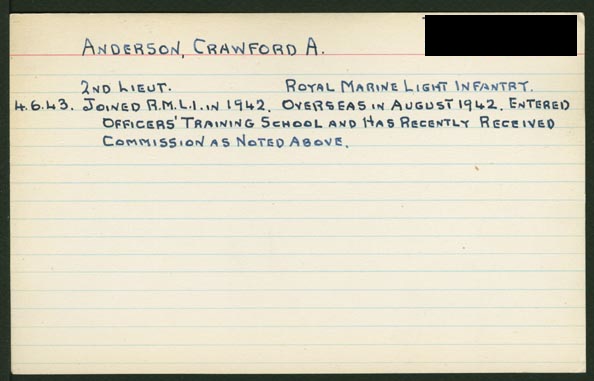 ANDERSON, CRAWFORD A.
2ND LIEUT. ROYAL MARINE LIGHT INFANTRY.
4.6.43. JOINED R.M.L.I. IN 1942. OVERSEAS IN AUGUST 1942. ENTERED
OFFICERS' TRAINING SCHOOL AND HAS RECENTLY RECEIVED
COMMISSION AS NOTED ABOVE.